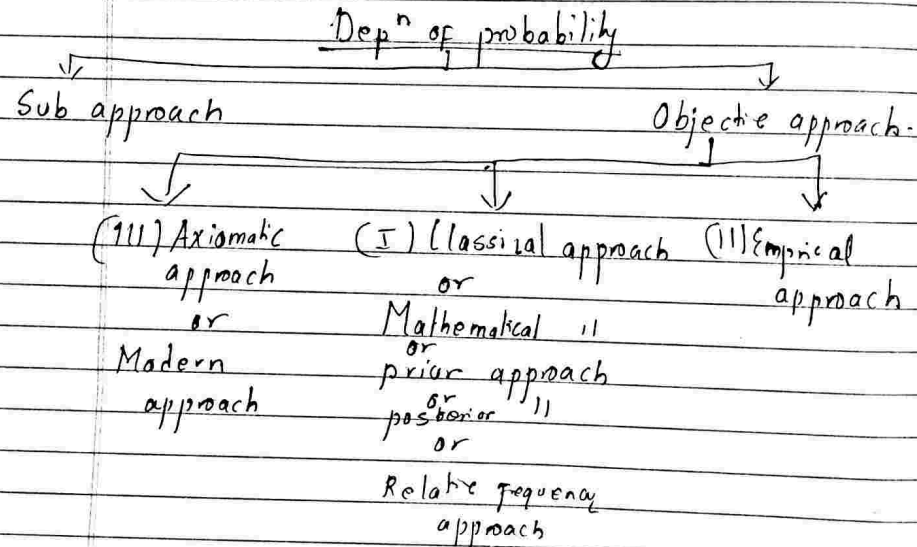 Depⁿ of probability
Sub approach
Objective approach.
(III) Axiomatic approach or Modern approach
(I) Classical approach
or
Mathematical "
or
prior approach
or
posterior "
or
Relative frequency
approach
(II) Emprical
approach